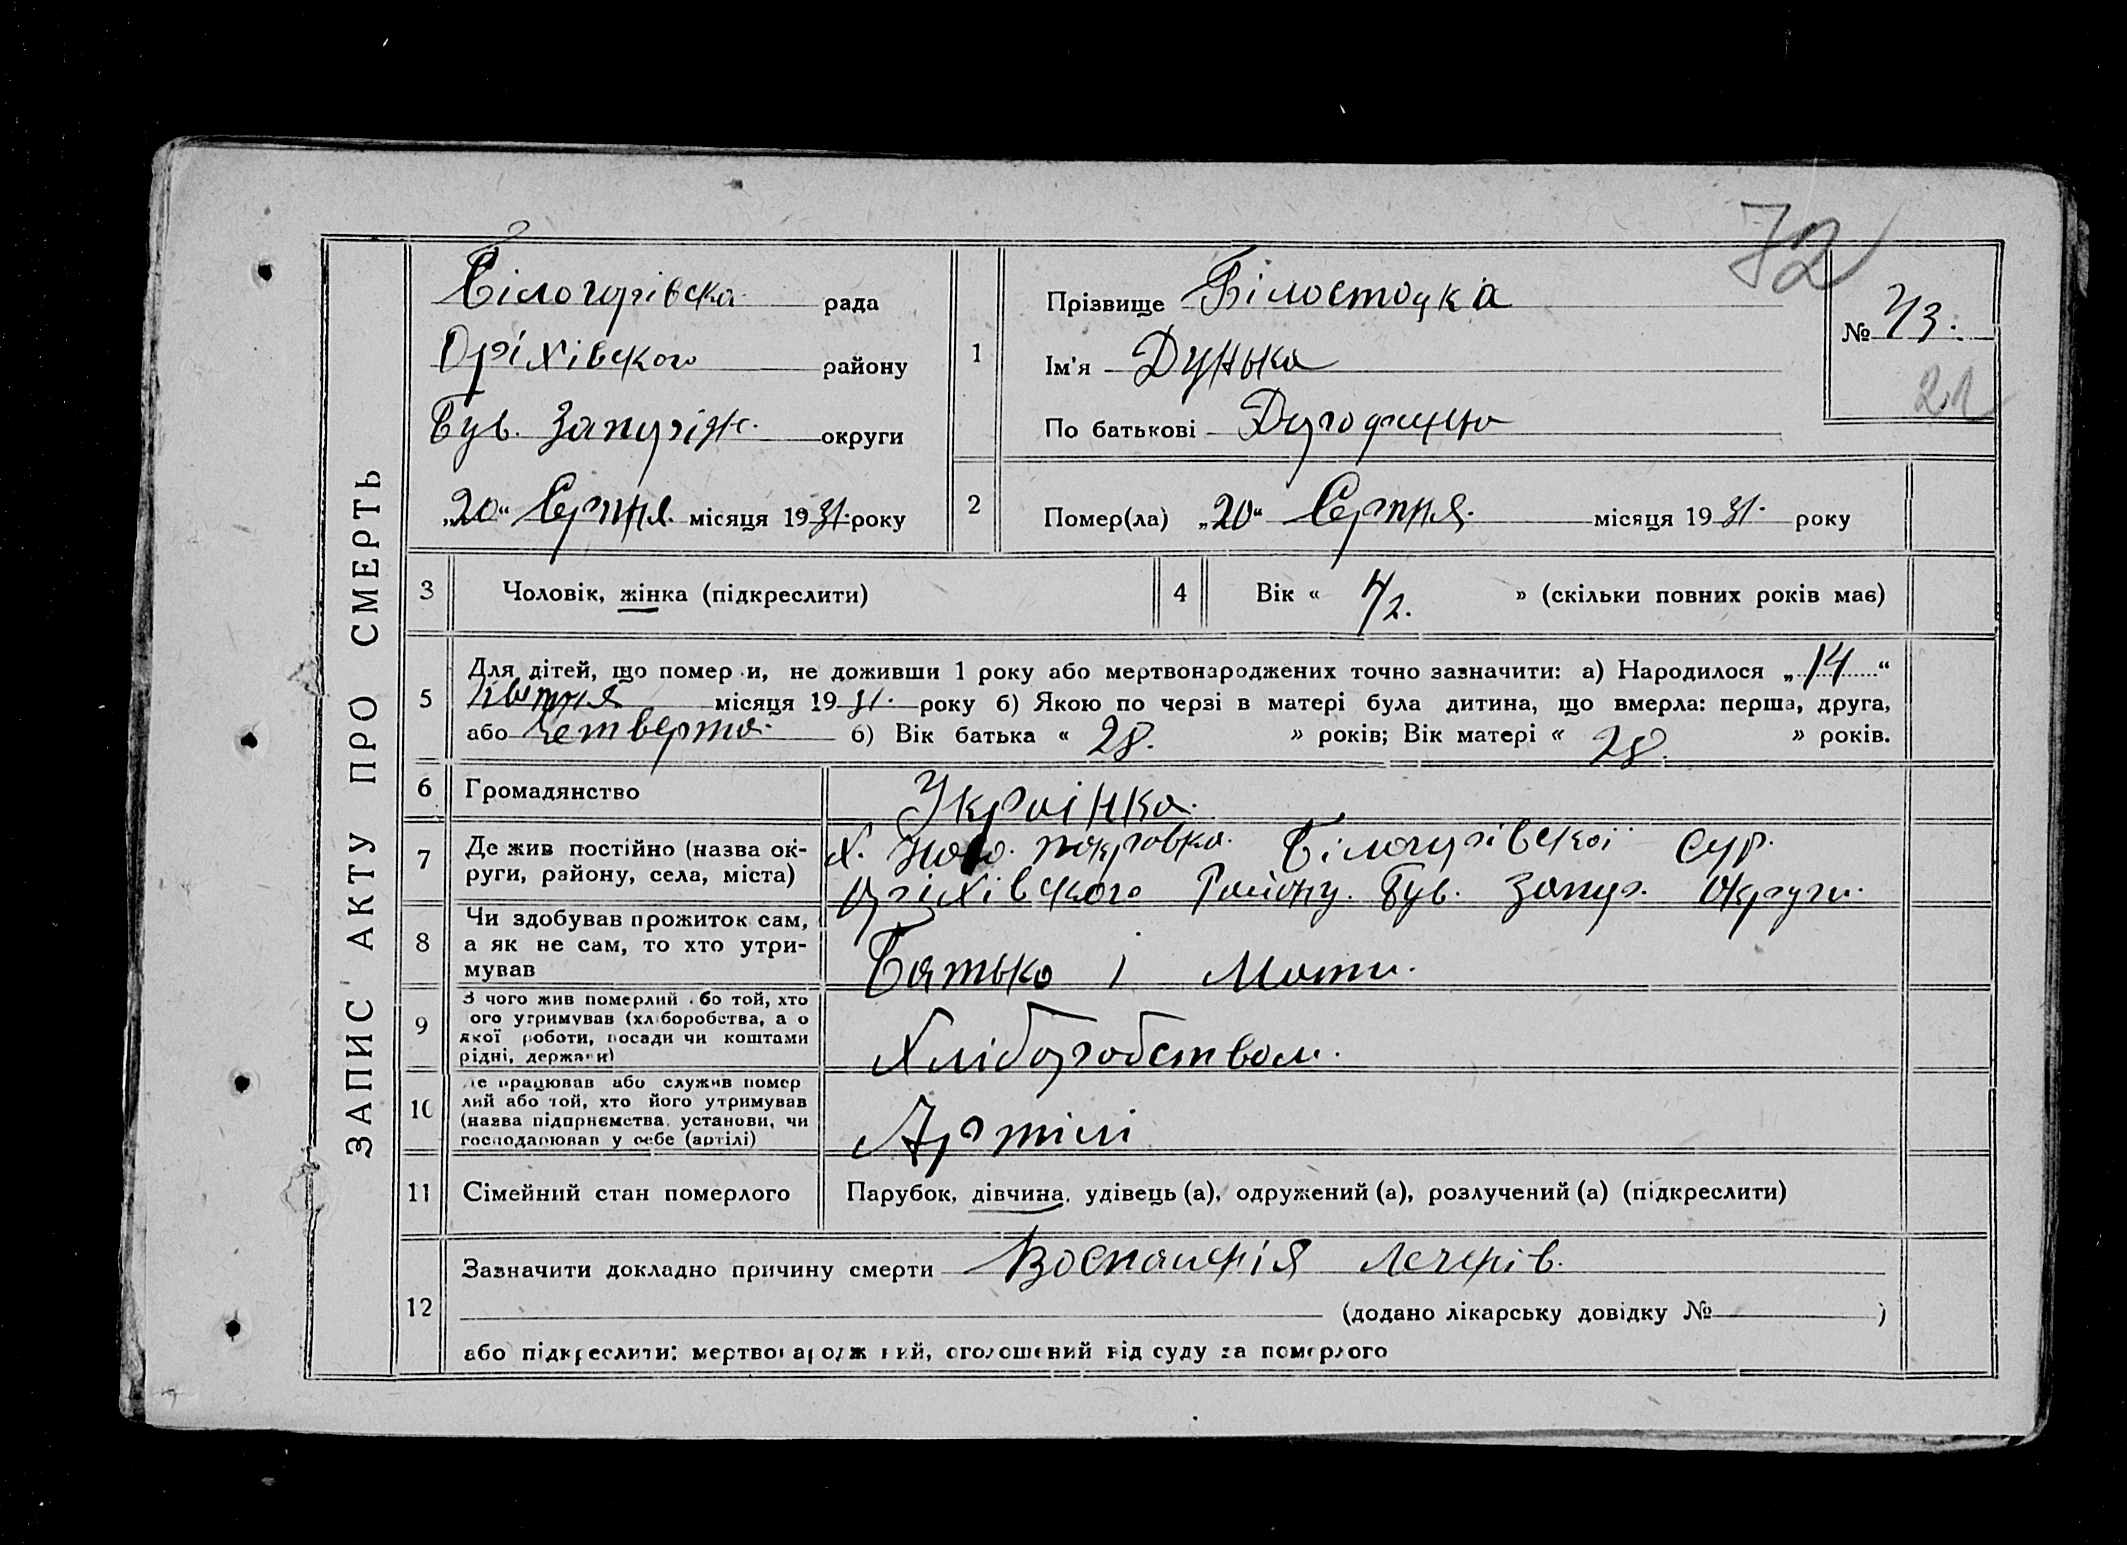 72
ЗАПИС АКТУ ПРО СМЕРТЬ
Білогорівска рада
Оріхівского району
Був. Запоріж. округи
„20“ Серпня. місяця 1931. року
1
Прізвище Білостоцка
Ім'я Дунька
По батькові
№ 43.
21
2 Помер(ла) „20“ Серпня. місяця 1931. року
3 Чоловік, жінка (підкреслити)
4 Вік « 4/2. » (скільки повних років має)
5 Для дітей, що помер и, не доживши 1 року або мертвонароджених точно зазначити: а) Народилося „14“
Квітня місяця 1931. року б) Якою по черзі в матері була дитина, що вмерла: перша, друга,
або четверта. б) Вік батька « 28. » років; Вік матері « 28. » років.
6 Громадянство Українка.
7 Де жив постійно (назва ок-
руги, району, села, міста)
х. Ново. покровка. Білогорівскої Сур.
Оріхівского Району. Був. Запор. Округи.
8 Чи здобував прожиток сам,
а як не сам, то хто утри-
мував
Батько і Мати.
9 З чого жив померлий бо той, хто
ого утримував (хліборобства, а о
якої роботи, посади чи коштами
рідні, держави)
Хліборобством.
10 де працював або служив помер
лий або той, хто його утримував
(назва підприємства, установи, чи
господарював у себе (артілі)
Артілі
11 Сімейний стан померлого Парубок, дівчина, удівець (а), одружений (а), розлучений (а) (підкреслити)
12 Зазначити докладно причину смерти Воспаленія Легенів.
(додано лікарську довідку № )
або підкреслити: мертвонароджений, оголошений від суду за померлого